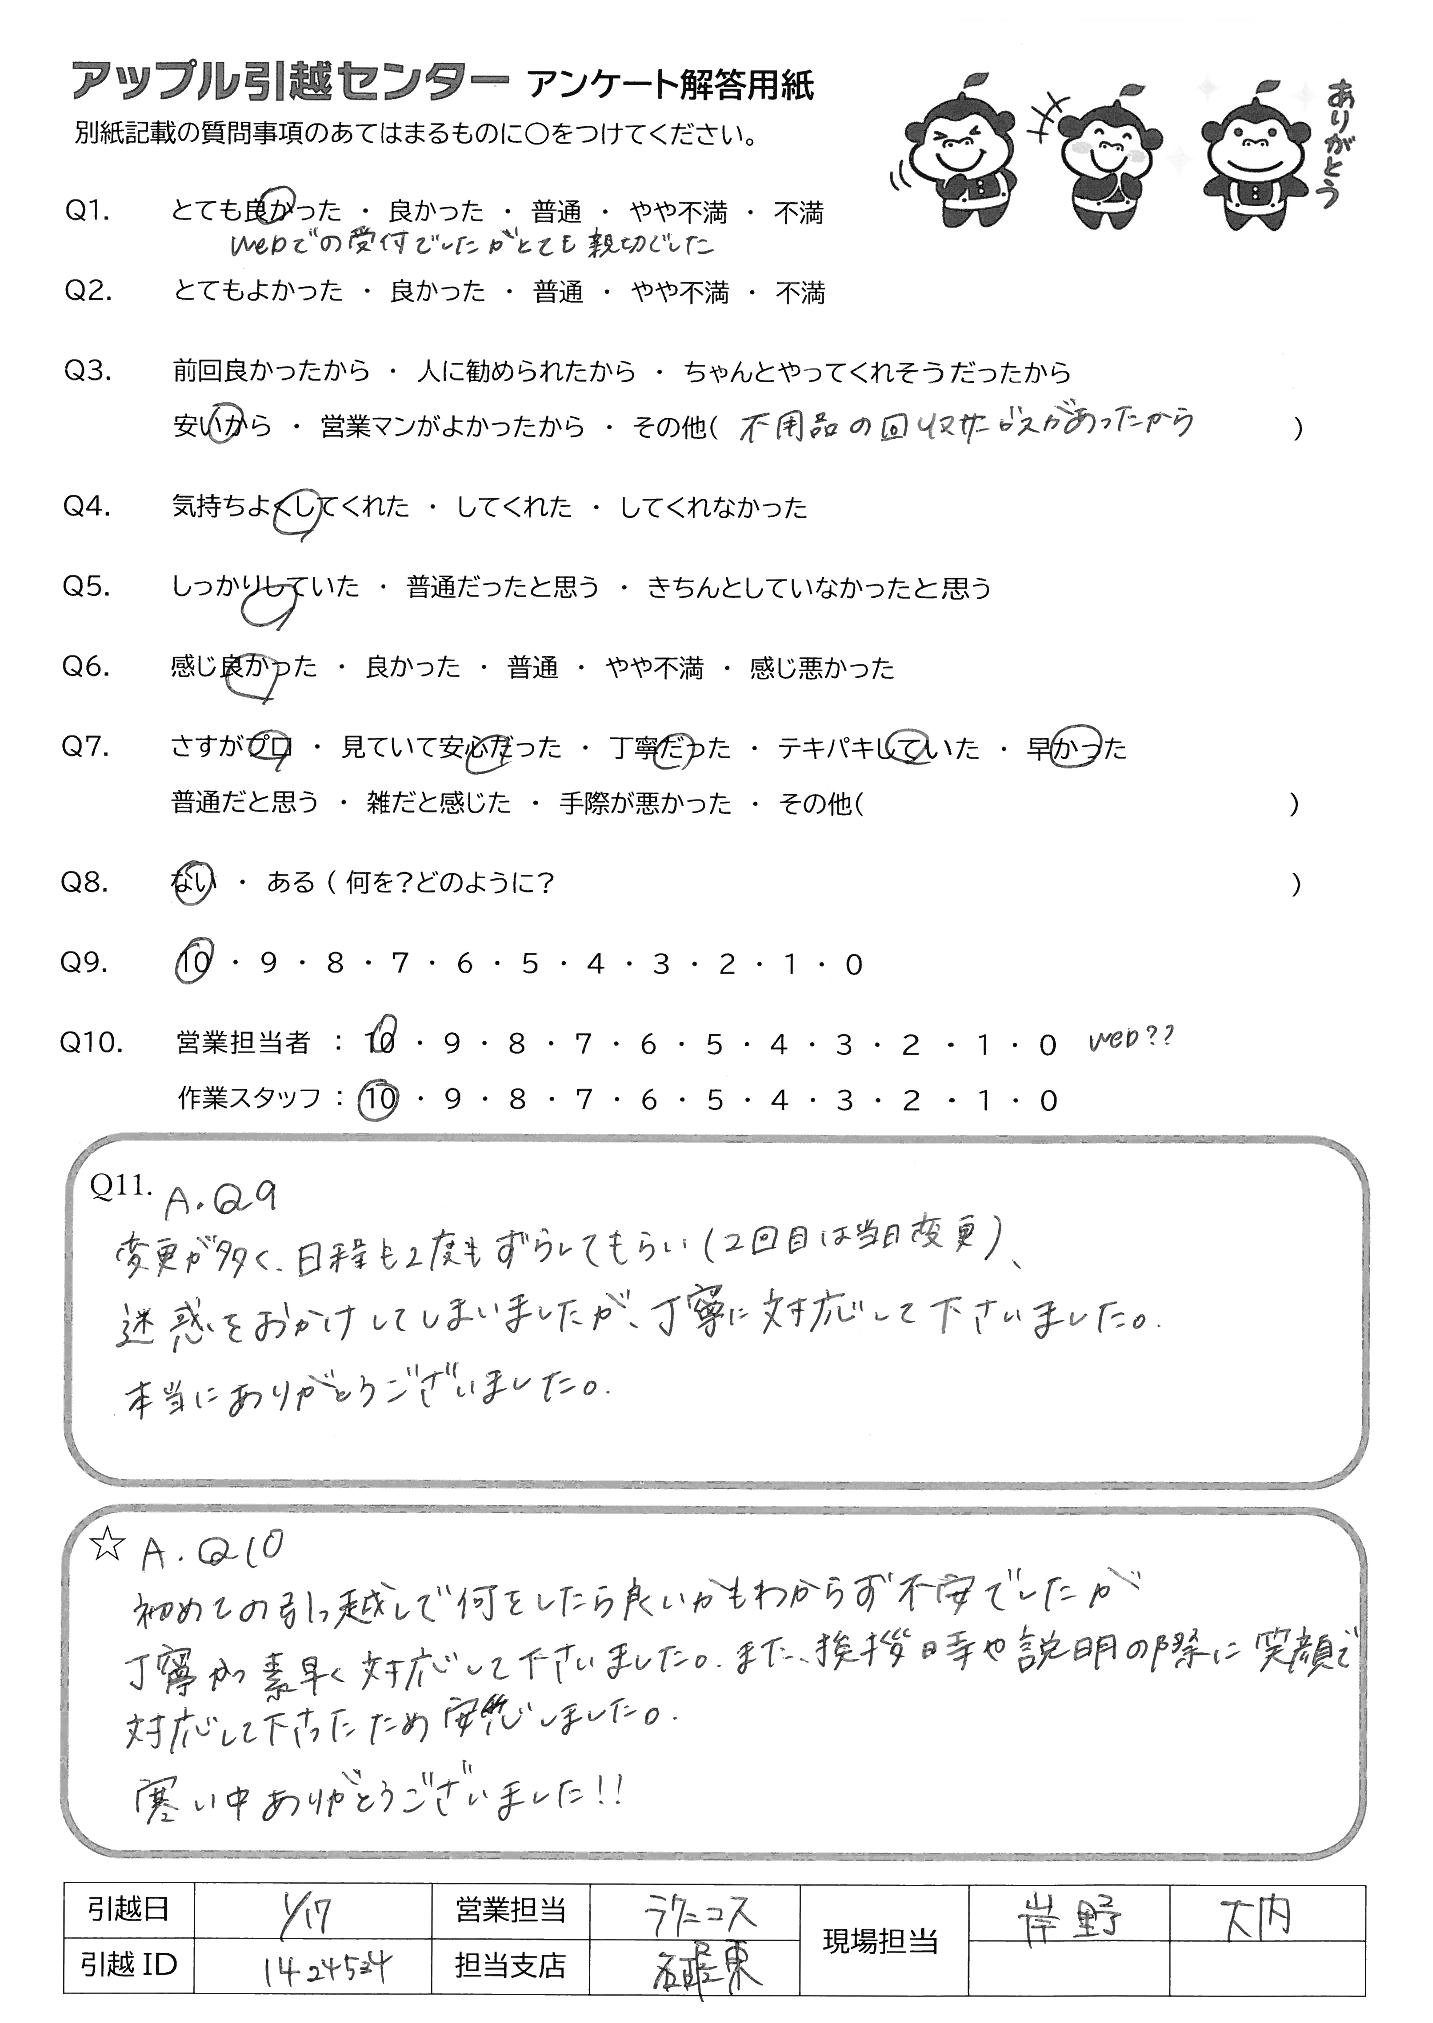 アップル引越センター アンケート解答用紙
ありがとう
別紙記載の質問事項のあてはまるものに○をつけてください。
Q1. とても良かった ・ 良かった ・ 普通 ・ やや不満 ・ 不満
webでの受付でしたがとても親切でした
Q2. とてもよかった ・ 良かった ・ 普通 ・ やや不満 ・ 不満
Q3. 前回良かったから ・ 人に勧められたから ・ ちゃんとやってくれそうだったから
安いから ・ 営業マンがよかったから ・ その他( 不用品の回収サービスがあったから )
Q4. 気持ちよくしてくれた ・ してくれた ・ してくれなかった
Q5. しっかりしていた ・ 普通だったと思う ・ きちんとしていなかったと思う
Q6. 感じ良かった ・ 良かった ・ 普通 ・ やや不満 ・ 感じ悪かった
Q7. さすがプロ ・ 見ていて安心だった ・ 丁寧だった ・ テキパキしていた ・ 早かった
普通だと思う ・ 雑だと感じた ・ 手際が悪かった ・ その他( )
Q8. ない ・ ある ( 何を?どのように? )
Q9. 10 ・ 9 ・ 8 ・ 7 ・ 6 ・ 5 ・ 4 ・ 3 ・ 2 ・ 1 ・ 0
Q10. 営業担当者 : 10 ・ 9 ・ 8 ・ 7 ・ 6 ・ 5 ・ 4 ・ 3 ・ 2 ・ 1 ・ 0 web??
作業スタッフ : 10 ・ 9 ・ 8 ・ 7 ・ 6 ・ 5 ・ 4 ・ 3 ・ 2 ・ 1 ・ 0
Q11. A.Q9
変更が多く、日程も2度もずらしてもらい(2回目は当日変更)、
迷惑をおかけしてしまいましたが、丁寧に対応して下さいました。
本当にありがとうございました。
☆ A.Q10
初めての引っ越しで何をしたら良いかもわからず不安でしたが
丁寧かつ素早く対応して下さいました。また、挨拶時や説明の際に笑顔で
対応して下さったため安心しました。
寒い中ありがとうございました!!
引越日 1/17 営業担当 ラクニコス 現場担当 岸野 大内
引越ID 1424534 担当支店 東